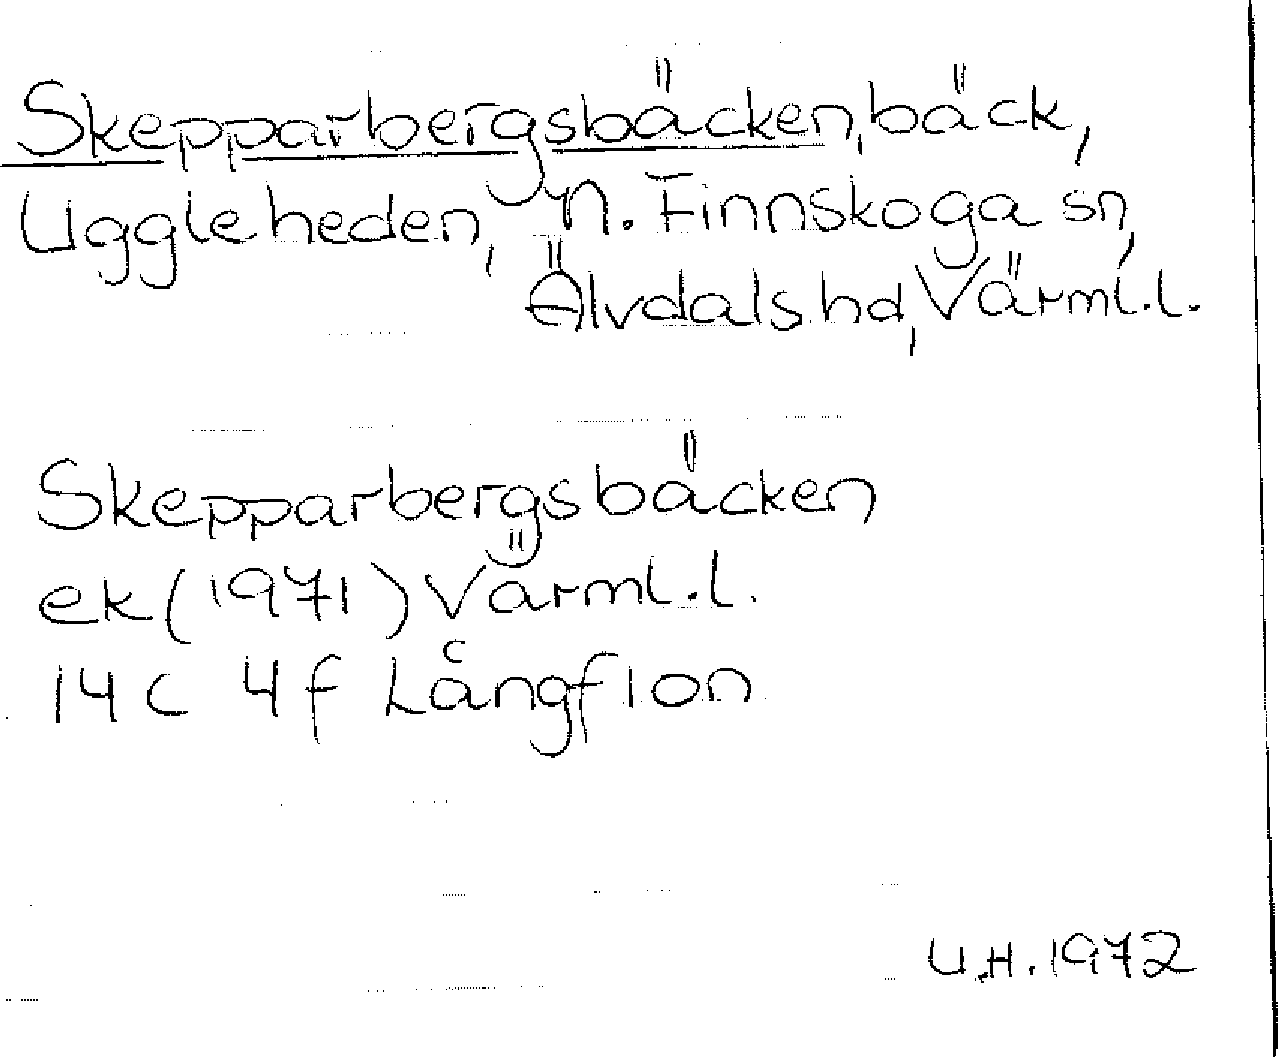 Skepparbergsbäcken, bäck,
Uggleheden, N. Finnskoga sn,
Älvdals hd, Värml.l.
Skepparbergsbäcken
ek (1971) Värml.l.
14 C 4 f Långflon
U.H. 1972